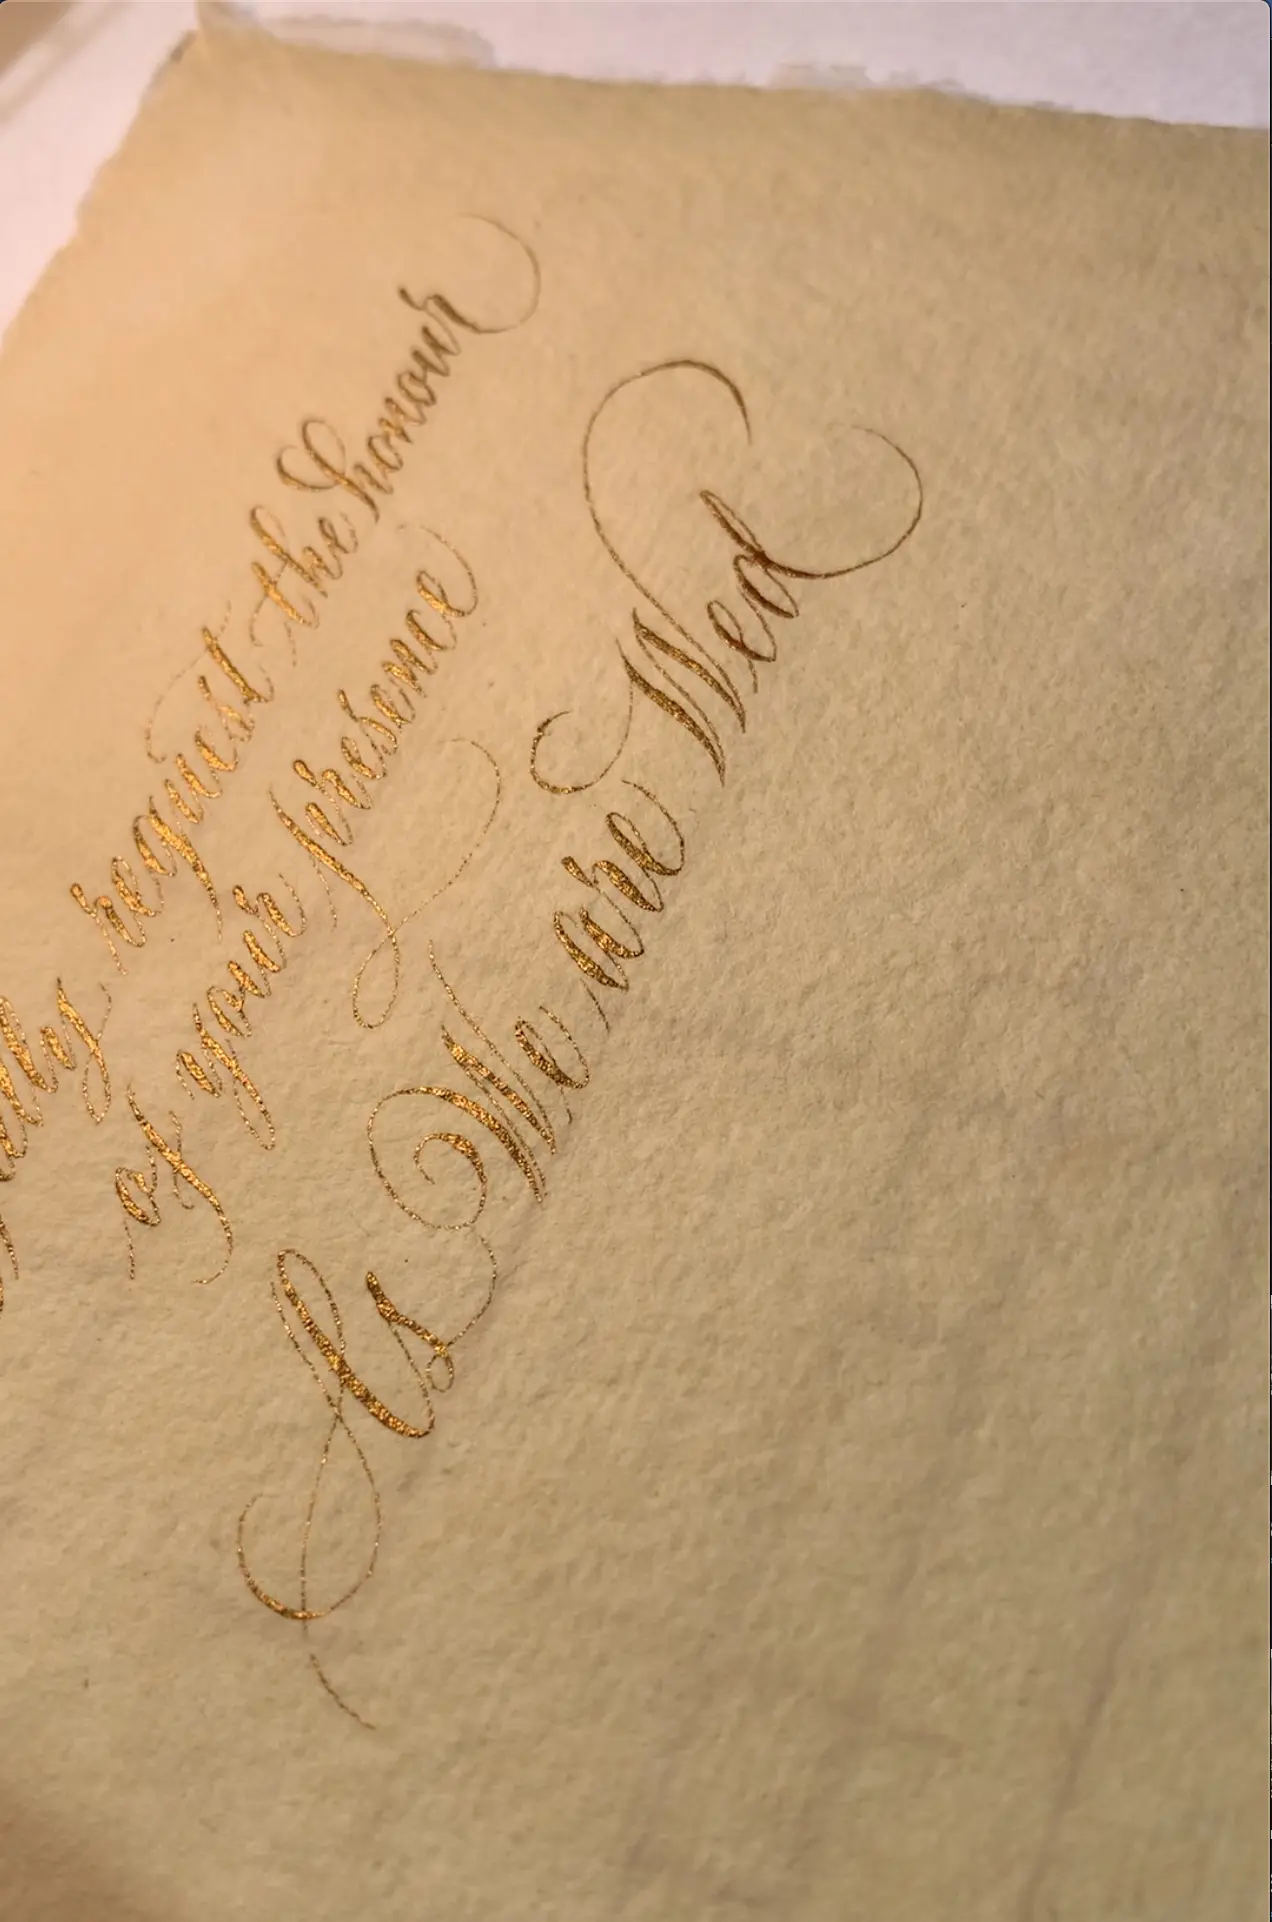 request the honour
of your presence
As We are Wed